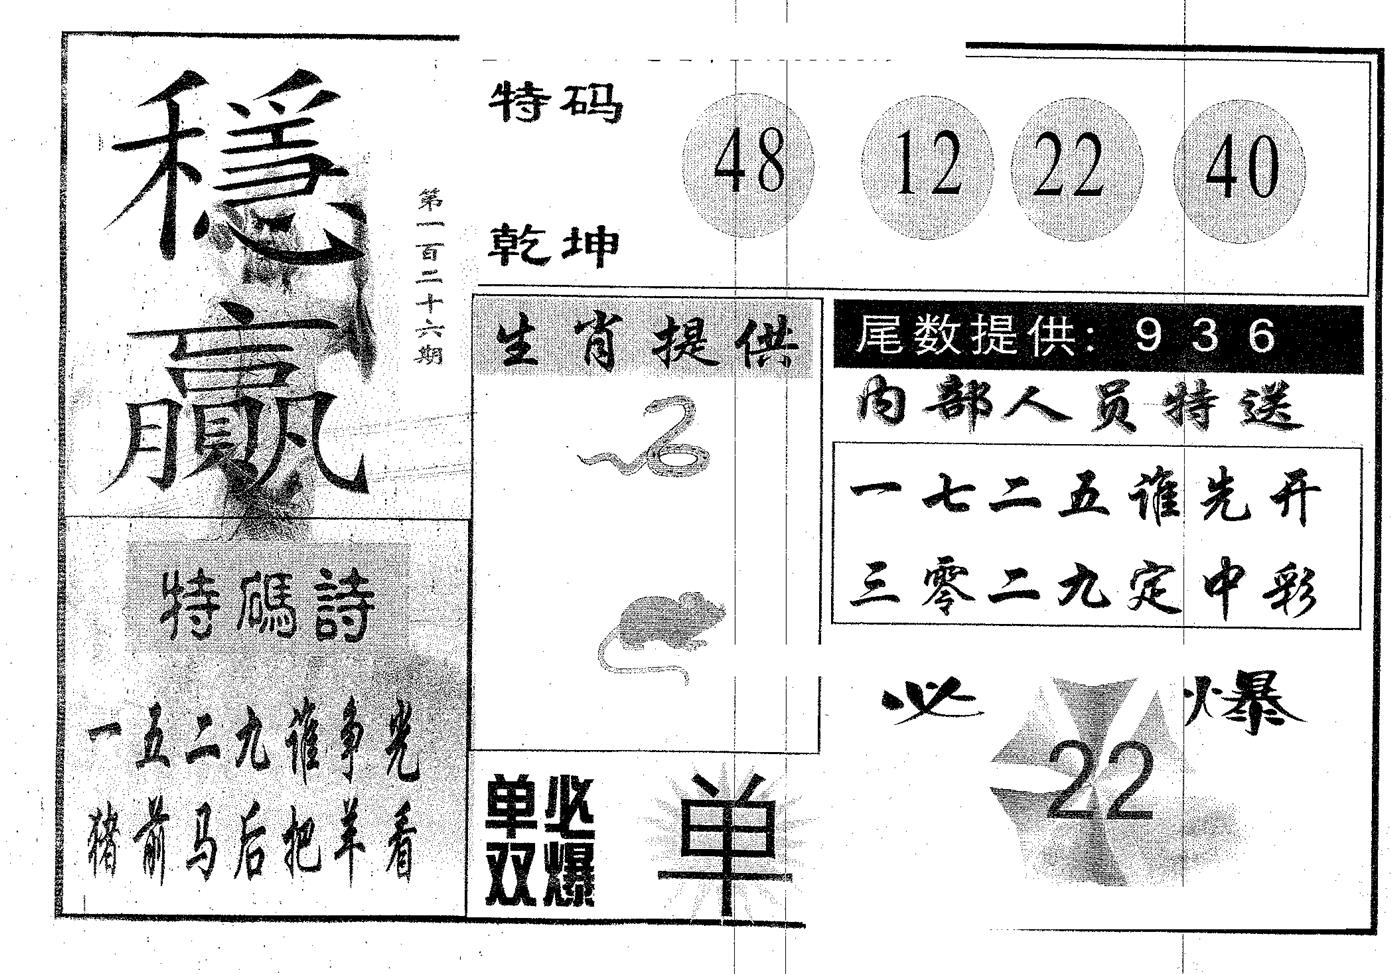 穩贏
第一百二十六期
特码
乾坤
48 12 22 40
生肖提供
尾数提供: 9 3 6
内部人员特送
一七二五谁先开
三零二九定中彩
特碼詩
一五二九谁争光
猪前马后把羊看
必爆
22
单双
必爆
单